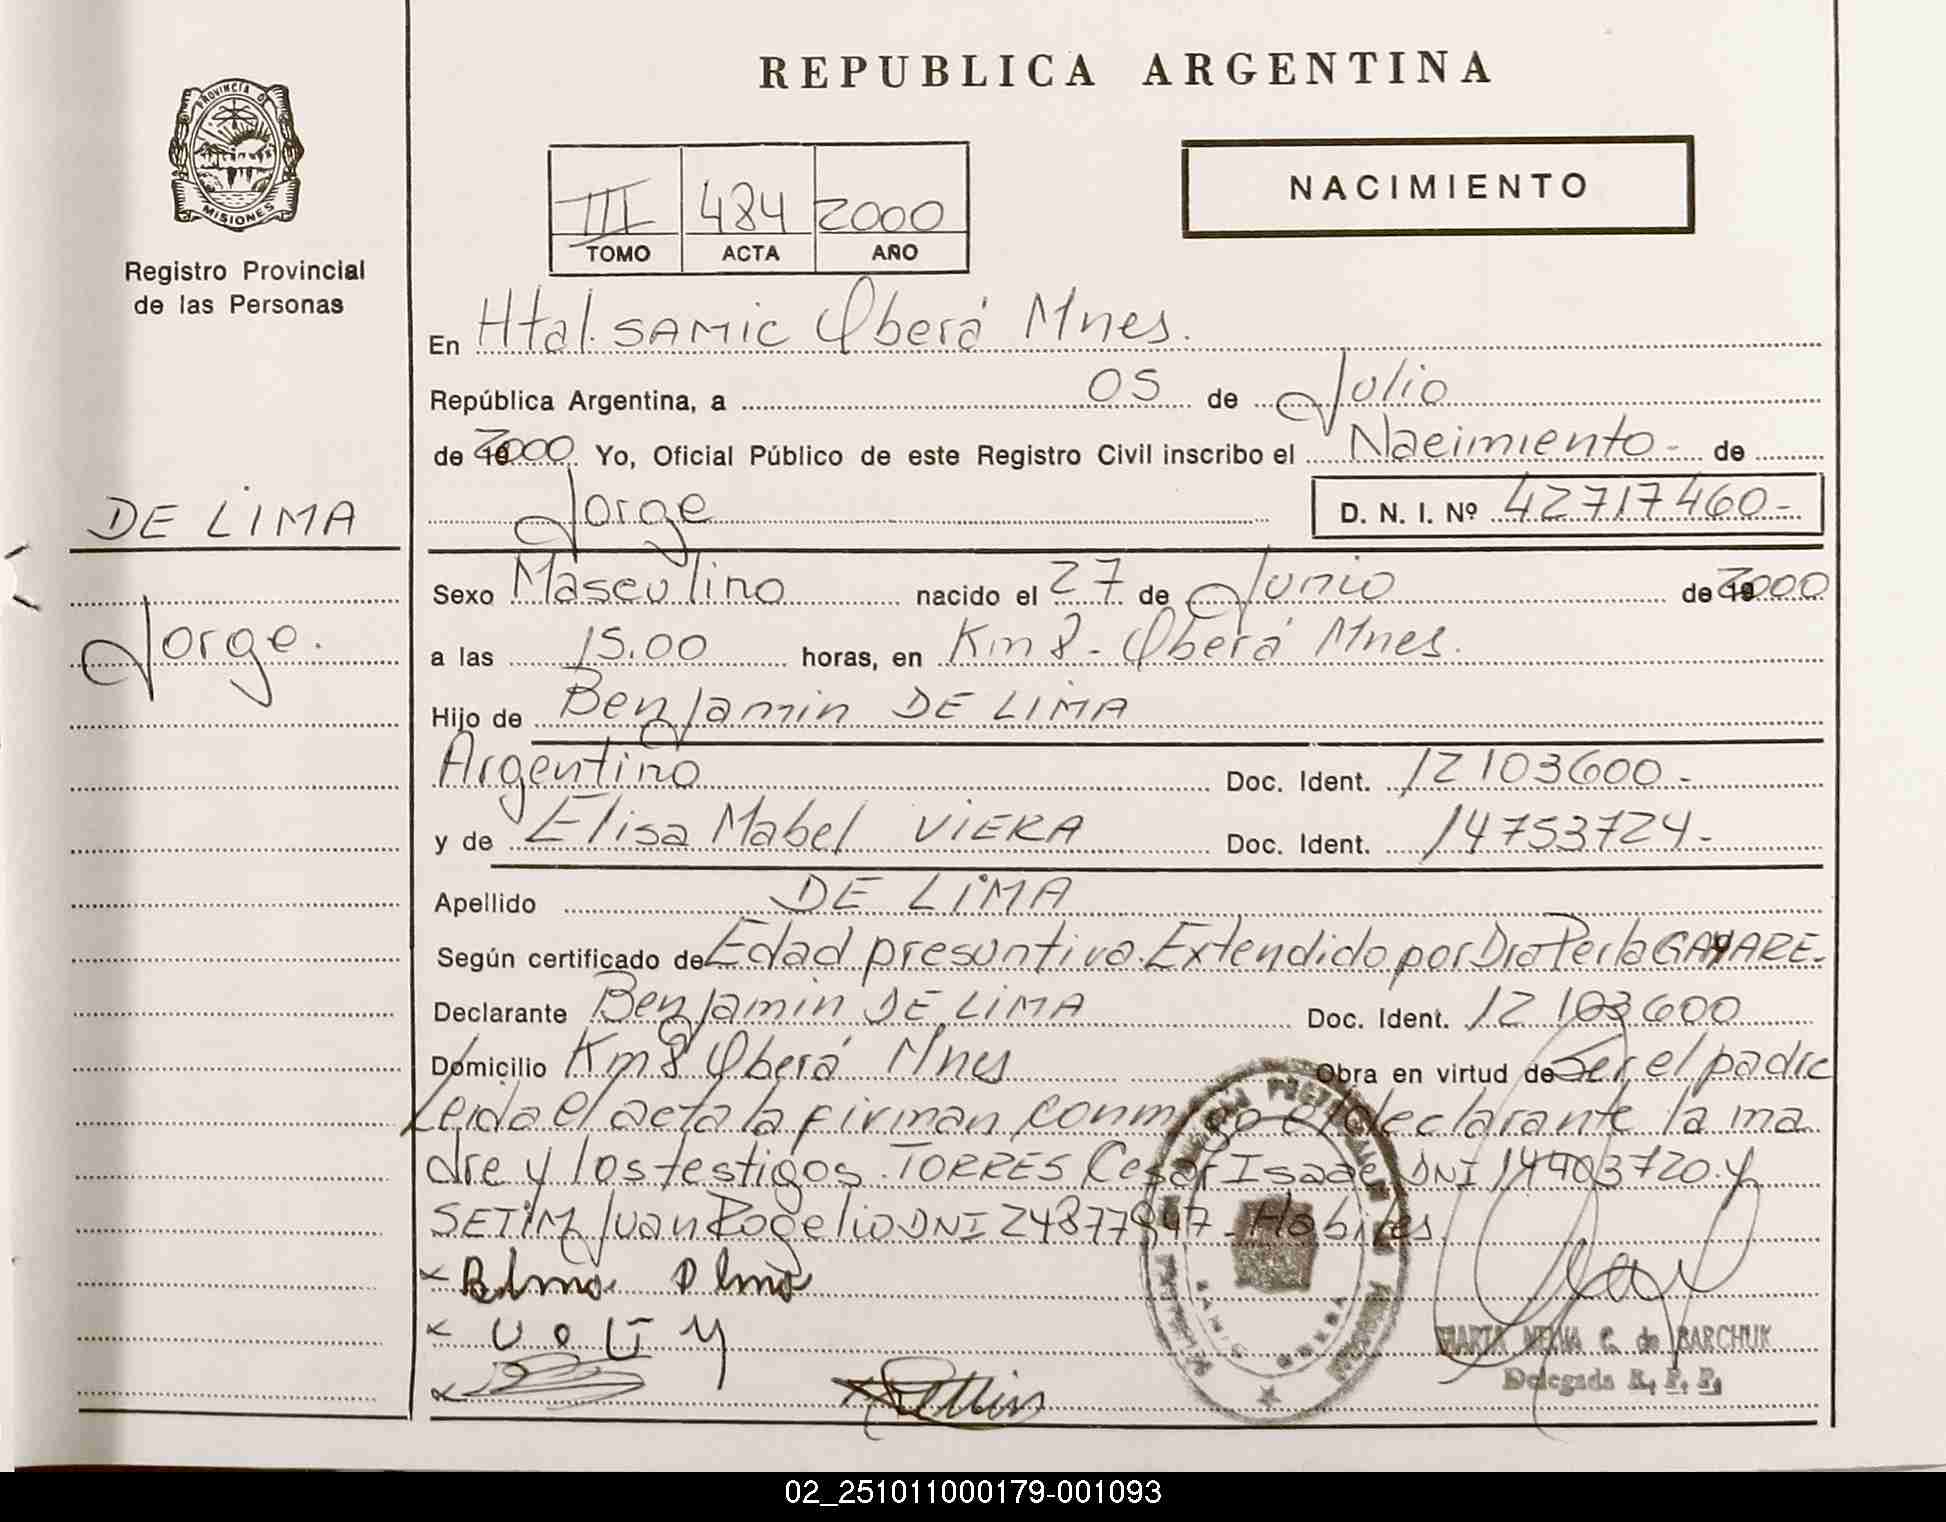 REPUBLICA ARGENTINA
PROVINCIA D
MISIONES
Registro Provincial
de las Personas
III 484 2000
TOMO ACTA AÑO
NACIMIENTO
En Htal. SAMIC Oberá Mnes.
República Argentina, a 05 de Julio
de 2000 Yo, Oficial Público de este Registro Civil inscribo el Nacimiento - de
Jorge D. N. I. Nº 42717460-
DE LIMA
Jorge.
Sexo Masculino nacido el 27 de Junio de 2000
a las 15.00 horas, en Km 8 - Oberá Mnes.
Hijo de Benjamin DE LIMA
Argentino Doc. Ident. 12103600-
y de Elisa Mabel VIERA Doc. Ident. 14753724-
Apellido DE LIMA
Según certificado de Edad presuntiva. Extendido por Dra Perla
Declarante Benjamin DE LIMA Doc. Ident. 12103600
Domicilio Km 8 Oberá Mnes Obra en virtud de Ser el padre
Leida el acta la firman conmigo el declarante la ma
dre y los testigos. TORRES Cesar Isaac DNI 14403720 y
SETIM Juan Rogelio DNI 24877947 - Habiles
MARTA NELVA C. de BARCHUK
Delegada R. P. P.
02_251011000179-001093